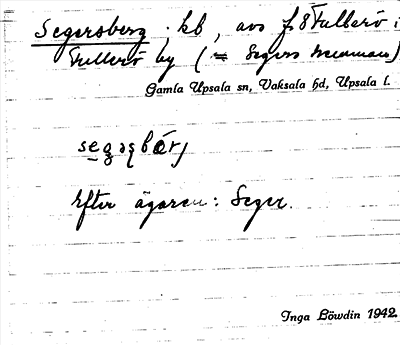 Segersberg : hb, avs fr 8 Fullerö i
Fullerö by ( = Segers
Gamla Upsala sn, Vaksala hd, Upsala l.
Efter ägaren: Seger.
Inga Löwdin 1942.